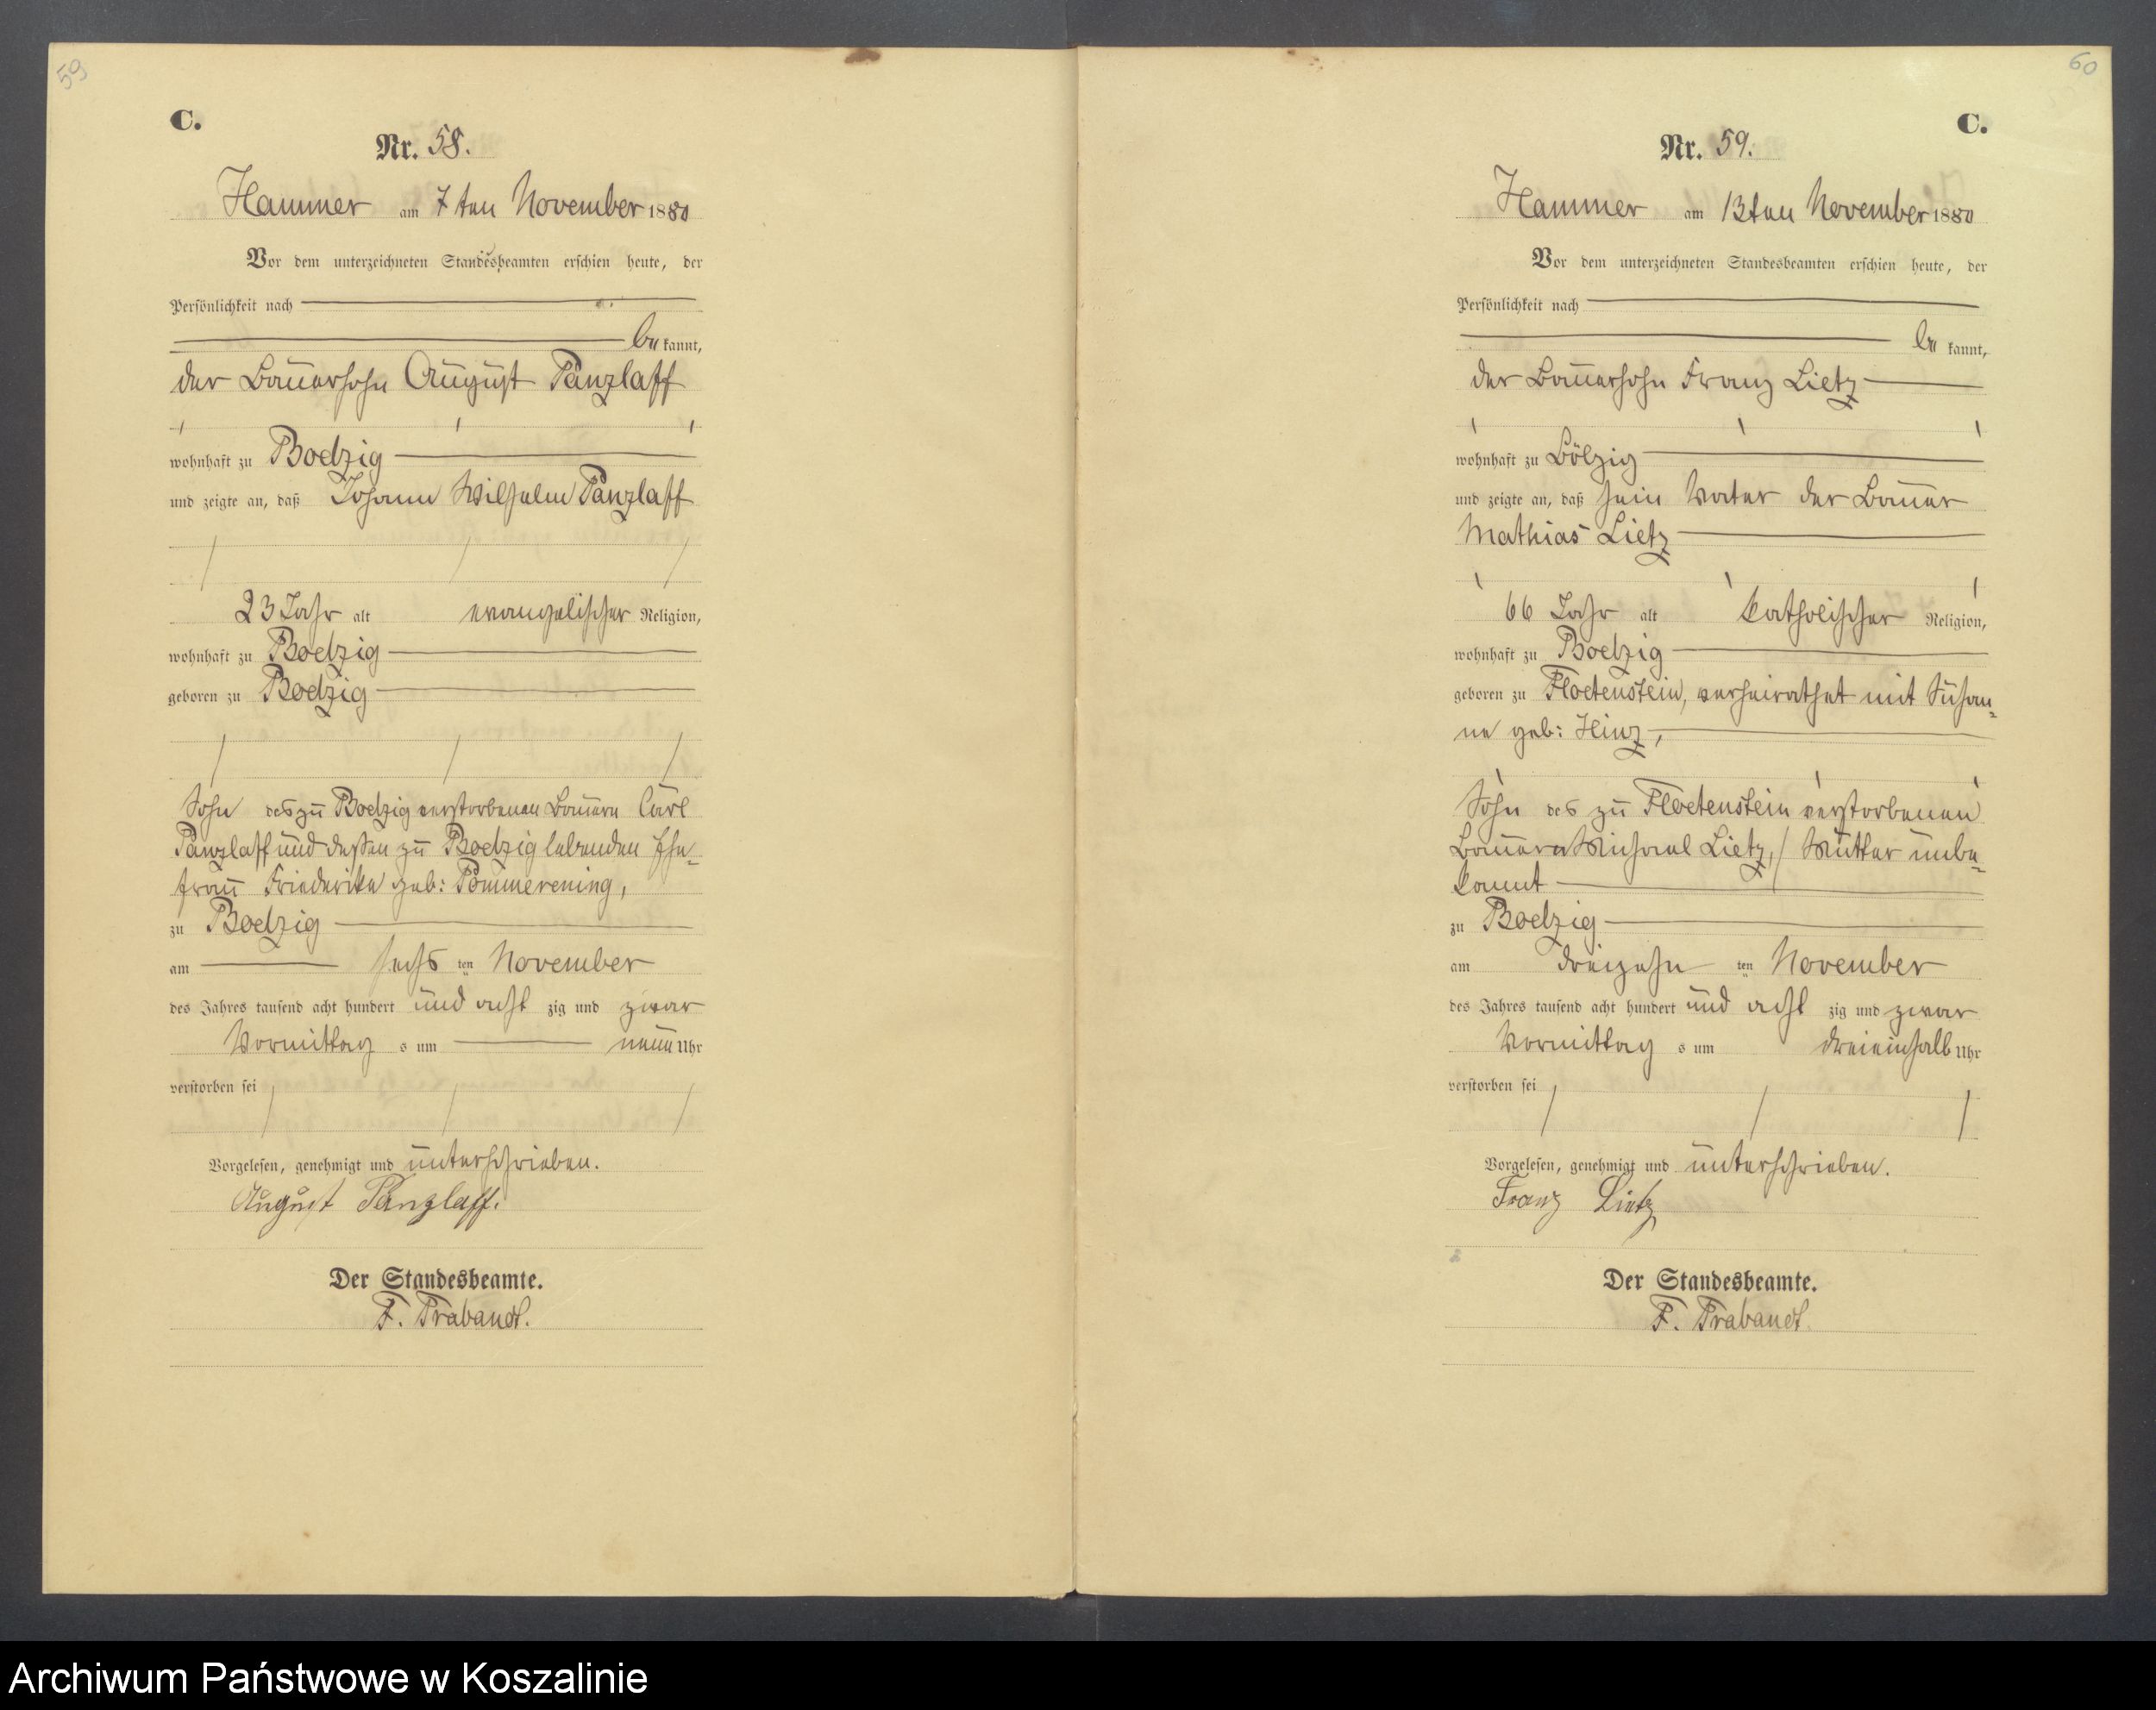 59
C.
Nr. 58.
Hammer am 7ten November 1880
Vor dem unterzeichneten Standesbeamten erschien heute, der
Persönlichkeit nach
be kannt,
der Bauersohn August Panzlaff
wohnhaft zu Boelzig
und zeigte an, daß Johann Wilhelm Panzlaff
23 Jahr alt evangelischer Religion,
wohnhaft zu Boelzig
geboren zu Boelzig
Sohn des zu Boelzig verstorbenen Bauern Carl
Panzlaff und deßen zu Boelzig lebenden Ehe-
frau Friederike geb: Pommerening,
zu Boelzig
am sechs ten November
des Jahres tausend acht hundert und acht zig und zwar
Vormittag s um neun Uhr
verstorben sei
Vorgelesen, genehmigt und unterschrieben.
August Panzlaff.
Der Standesbeamte.
F. Prabandt.
60
C.
Nr. 59.
Hammer am 13ten November 1880
Vor dem unterzeichneten Standesbeamten erschien heute, der
Persönlichkeit nach
be kannt,
der Bauersohn Franz Lietz
wohnhaft zu Bölzig
und zeigte an, daß sein Vater der Bauer
Mathias Lietz
66 Jahr alt katholischer Religion,
wohnhaft zu Boelzig
geboren zu Floetenstein, verheirathet mit Susan-
ne geb: Hinz,
Sohn des zu Floetenstein verstorbenen
Bauern Michael Lietz, / Mutter unbe-
kannt
zu Boelzig
am dreizehn ten November
des Jahres tausend acht hundert und acht zig und zwar
Vormittag s um dreieinhalb Uhr
verstorben sei
Vorgelesen, genehmigt und unterschrieben.
Franz Lietz
Der Standesbeamte.
F. Prabandt.
Archiwum Państwowe w Koszalinie